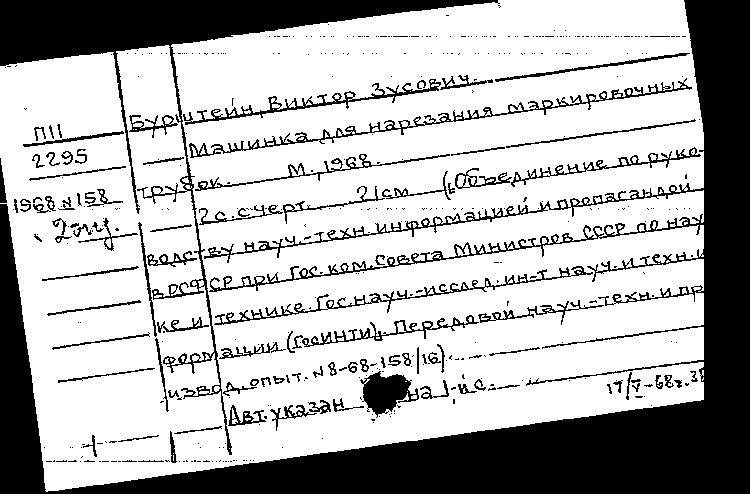 П11
2295
1968 N158
2 экз.
Бурштейн, Виктор Зусович.
Машинка для нарезания маркировочных
трубок. М., 1968.
2 с. с черт. 21см (Объединение по руко-
водству науч.-техн. информацией и пропагандой
в РСФСР при Гос. ком. Совета Министров СССР по нау
ке и технике. Гос. науч.-исслед. ин-т науч. и техн. и
формации (ГосИНТИ). Передовой науч.-техн. и пр
извод. опыт. N 8-68-158/16).
Авт. указан на 1-й с.
17/V-68г. 38